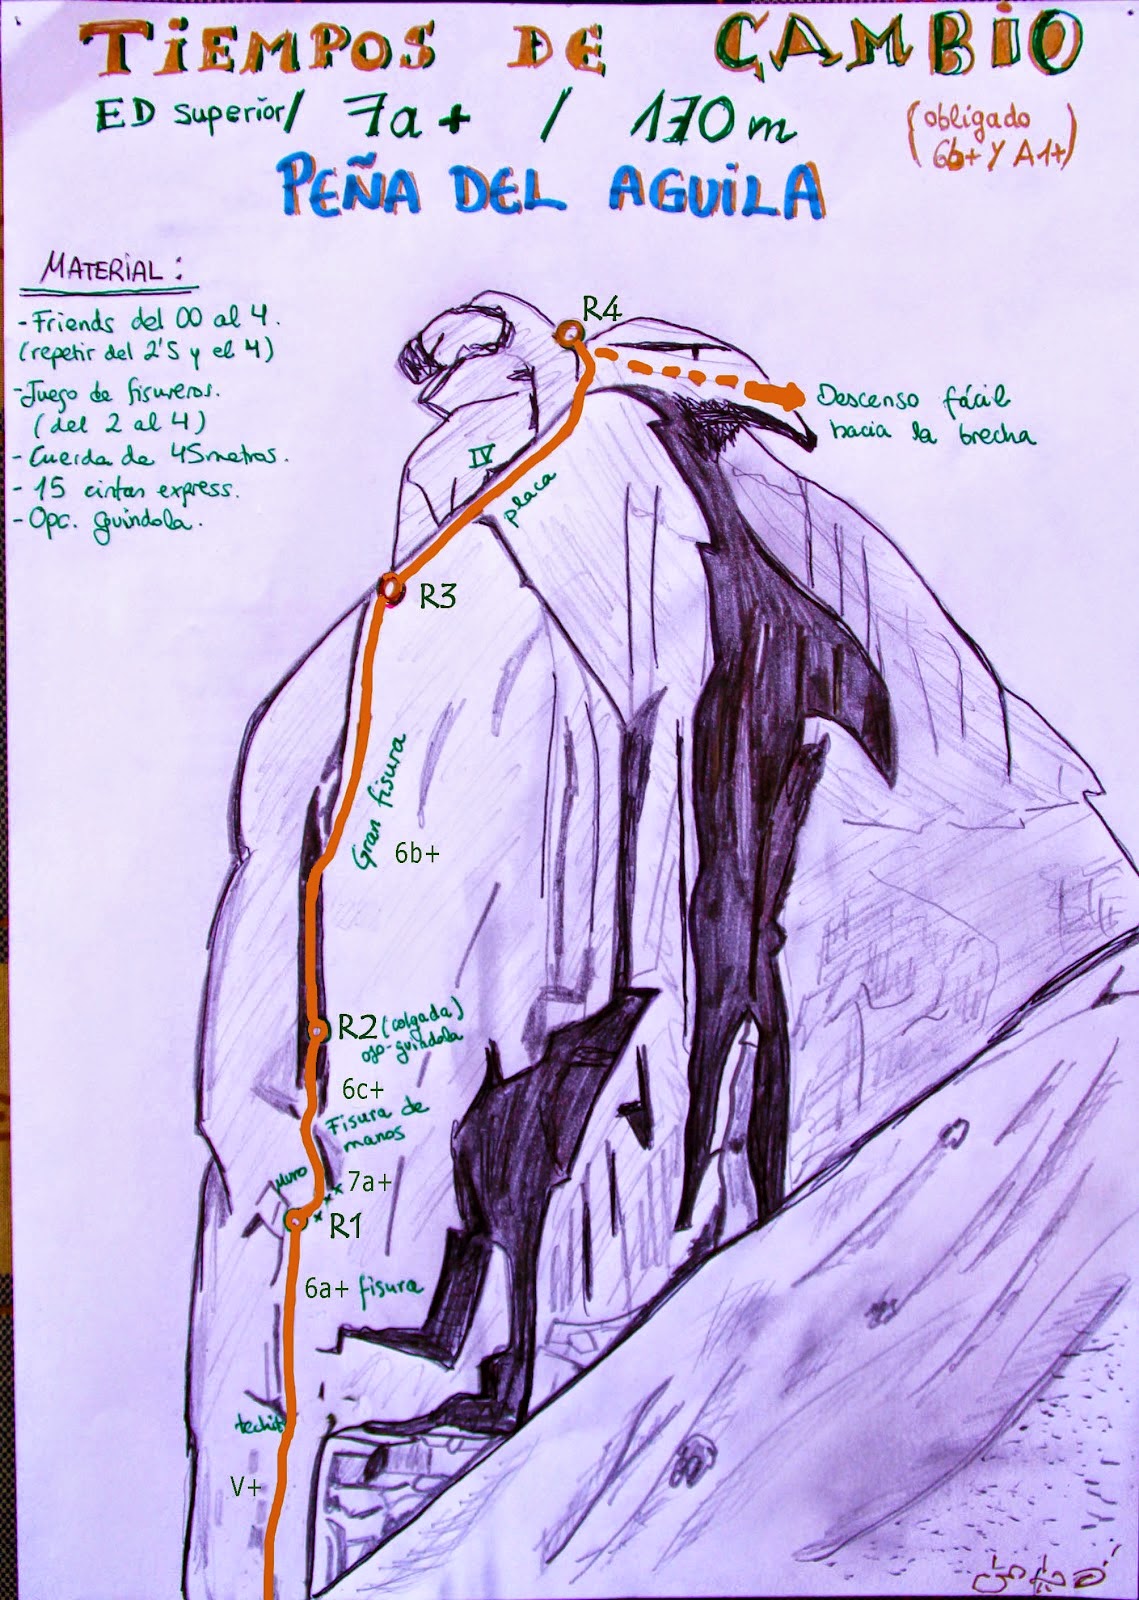 TIEMPOS DE CAMBIO
ED Superior/ 7a+ / 170m
(obligado
6b+ Y A1+)
PEÑA DEL AGUILA
MATERIAL:
- Friends del 00 al 4.
(repetir del 2'5 y el 4)
- Juego de fisureros.
(del 2 al 4)
- Cuerda de 45metros.
- 15 cintas express.
- Opc. guindola.
R4
Descenso fácil
hacia la brecha
IV
placa
R3
Gran fisura
6b+
R2 (colgada)
guindola
6c+
Fisura de
manos
muro
7a+
R1
6a+ fisura
techito
V+